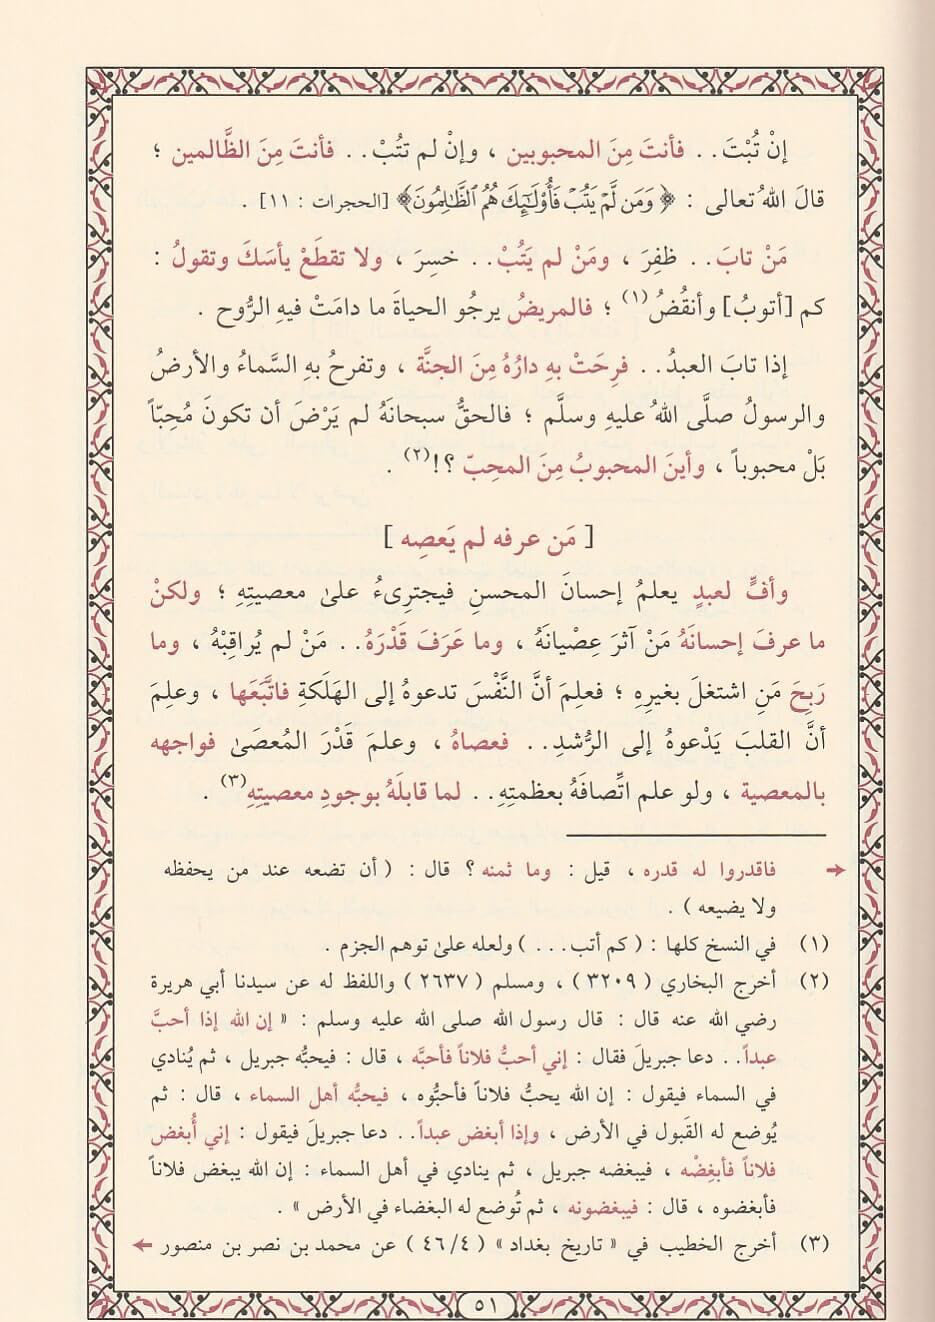 إنْ تُبْتَ.. فأنتَ مِنَ المحبوبين ، وإنْ لم تتُبْ.. فأنتَ مِنَ الظَّالمين ؛
قالَ اللهُ تعالى : ﴿ وَمَن لَّمْ يَتُبْ فَأُوْلَٰٓئِكَ هُمُ ٱلظَّٰلِمُونَ﴾ [الحجرات : ١١] .
مَنْ تابَ.. ظفِرَ ، ومَنْ لم يَتُبْ.. خسِرَ ، ولا تقطَعْ يأسَكَ وتقولُ :
كم [أتوبُ] وأنقُضُ(١) ؛ فالمريضُ يرجُو الحياةَ ما دامَتْ فيهِ الرُّوح .
إذا تابَ العبدُ.. فرِحَتْ بهِ دارُهُ مِنَ الجنَّة ، وتفرحُ بهِ السَّماءُ والأرضُ
والرسولُ صلَّى اللهُ عليهِ وسلَّم ؛ فالحقُّ سبحانَهُ لم يَرْضَ أن تكونَ مُحِبّاً
بَلْ محبوباً ، وأينَ المحبوبُ مِنَ المحِبّ ؟!(٢) .
[ مَن عرفه لم يَعصِه ]
وأفٍّ لعبدٍ يعلمُ إحسانَ المحسنِ فيجترِىءُ علىٰ معصيتِهِ ؛ ولكنْ
ما عرفَ إحسانَهُ مَنْ آثرَ عِصْيانَهُ ، وما عَرَفَ قَدْرَهُ.. مَنْ لم يُراقِبْهُ ، وما
رَبِحَ مَنِ اشتغلَ بغيرِهِ ؛ فعلِمَ أنَّ النَّفْسَ تدعوهُ إلى الهَلَكةِ فاتَّبَعَها ، وعلِمَ
أنَّ القلبَ يَدْعوهُ إلى الرُّشدِ.. فعصاهُ ، وعلمَ قَدْرَ المُعصَىٰ فواجهه
بالمعصية ، ولو علم اتِّصافَهُ بعظمتِهِ.. لما قابلَهُ بوجودِ معصيتِهِ(٣) .
فاقدروا له قدره ، قيل : وما ثمنه ؟ قال : ( أن تضعه عند من يحفظه
ولا يضيعه ) .
(١) في النسخ كلها : ( كم أتب... ) ولعله علىٰ توهم الجزم .
(٢) أخرج البخاري ( ٣٢٠٩ ) ، ومسلم ( ٢٦٣٧ ) واللفظ له عن سيدنا أبي هريرة
رضي الله عنه قال : قال رسول الله صلى الله عليه وسلم : « إن الله إذا أحبَّ
عبداً.. دعا جبريلَ فقال : إني أحبُّ فلاناً فأحبَّه ، قال : فيحبُّه جبريل ، ثم يُنادي
في السماء فيقول : إن الله يحبُّ فلاناً فأحبُّوه ، فيحبُّه أهل السماء ، قال : ثم
يُوضع له القَبول في الأرض ، وإذا أبغض عبداً.. دعا جبريلَ فيقول : إني أُبغض
فلاناً فأبغِضْه ، فيبغضه جبريل ، ثم ينادي في أهل السماء : إن الله يبغض فلاناً
فأبغضوه ، قال : فيبغضونه ، ثم تُوضع له البغضاء في الأرض » .
(٣) أخرج الخطيب في « تاريخ بغداد » ( ٤/ ٤٦ ) عن محمد بن نصر بن منصور
٥١